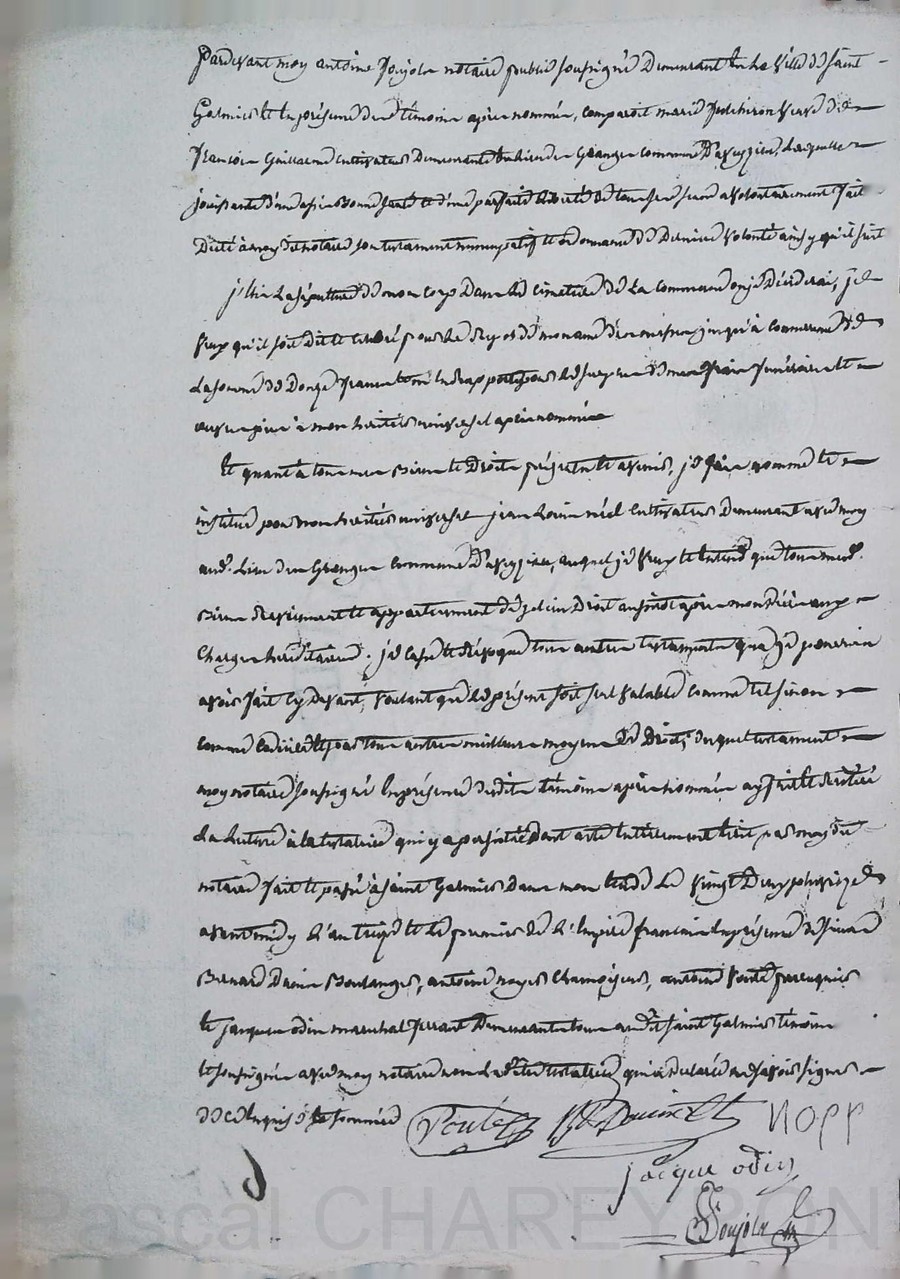 Pardevant moy antoine Poujola notaire public soussigné Demeurant En La Ville de Saint
Galmier Et En présence de témoins après nommés, comparoit marie veuve de
francois Guillaume Cultivateur Demeurante au lieu des Granges commune D'aveyzieu, Laquelle
jouissante d'une Bonne santé Et d'une parfaite liberté de tous ses sens a volontairement fait
Dicté à moy dit notaire son testament nuncupatif Et ordonnance de Derniere volonté ainsy qu'il suit
j'Elis La sépulture de mon corps Dans Le Cimetière de La commune où je Déciderai, je
veux qu'il soit Dit Et Célébré pour Le Repos de mon ame des messes jusqu'à concurrence de
La somme de Douze francs Et m'En rapporte pour Le surplus de mes frais funéraires Et
à mon héritier universel après nommé
Et quant à tous mes Biens Et Droits présents Et avenir, je fais nomme Et
institue pour mon héritier universel jean Louis niel Cultivateur Demeurant avec moy
aud. Lieu des Granges Commune D'aveyzieu, auquel je veux Et Entend que tous mesd.
Biens Reviennent Et appartiennent de plein Droit aussitôt après mon Décès aux
Charges héréditaires. je Casse Et Révoque tous autres testaments que je pourrais
avoir fait Cy Devant, voulant que Le présent soit seul valable comme tel sinon
comme Codicille Et par tous autres meilleurs moyens de Droit, Duquel testament
moy notaire soussigné En présence desdits témoins après nommés ay fait Et réitéré
La Lecture à la testatrice qui y a persisté Dont acte Entièrement Ecrit par moy dit
notaire fait Et passé à Saint Galmier Dans mon Etude Le vingt Deux pluviose
avant midy L'an treize Et Le premier de L'Empire français En présence de Sieurs
Bernard Drouin Boulanger, antoine noyer Chamoiseur, antoine Ponté perruquier
Et jacques odin marechal ferrant Demeurants tous aud. Saint Galmier témoins
Et soussignés avec moy notaire non Ladite testatrice qui a Déclaré ne Savoir signer
de ce Enquise Et sommée
Ponté B Drouin nopp
jacque odin
Poujola
Pascal CHAREYRON